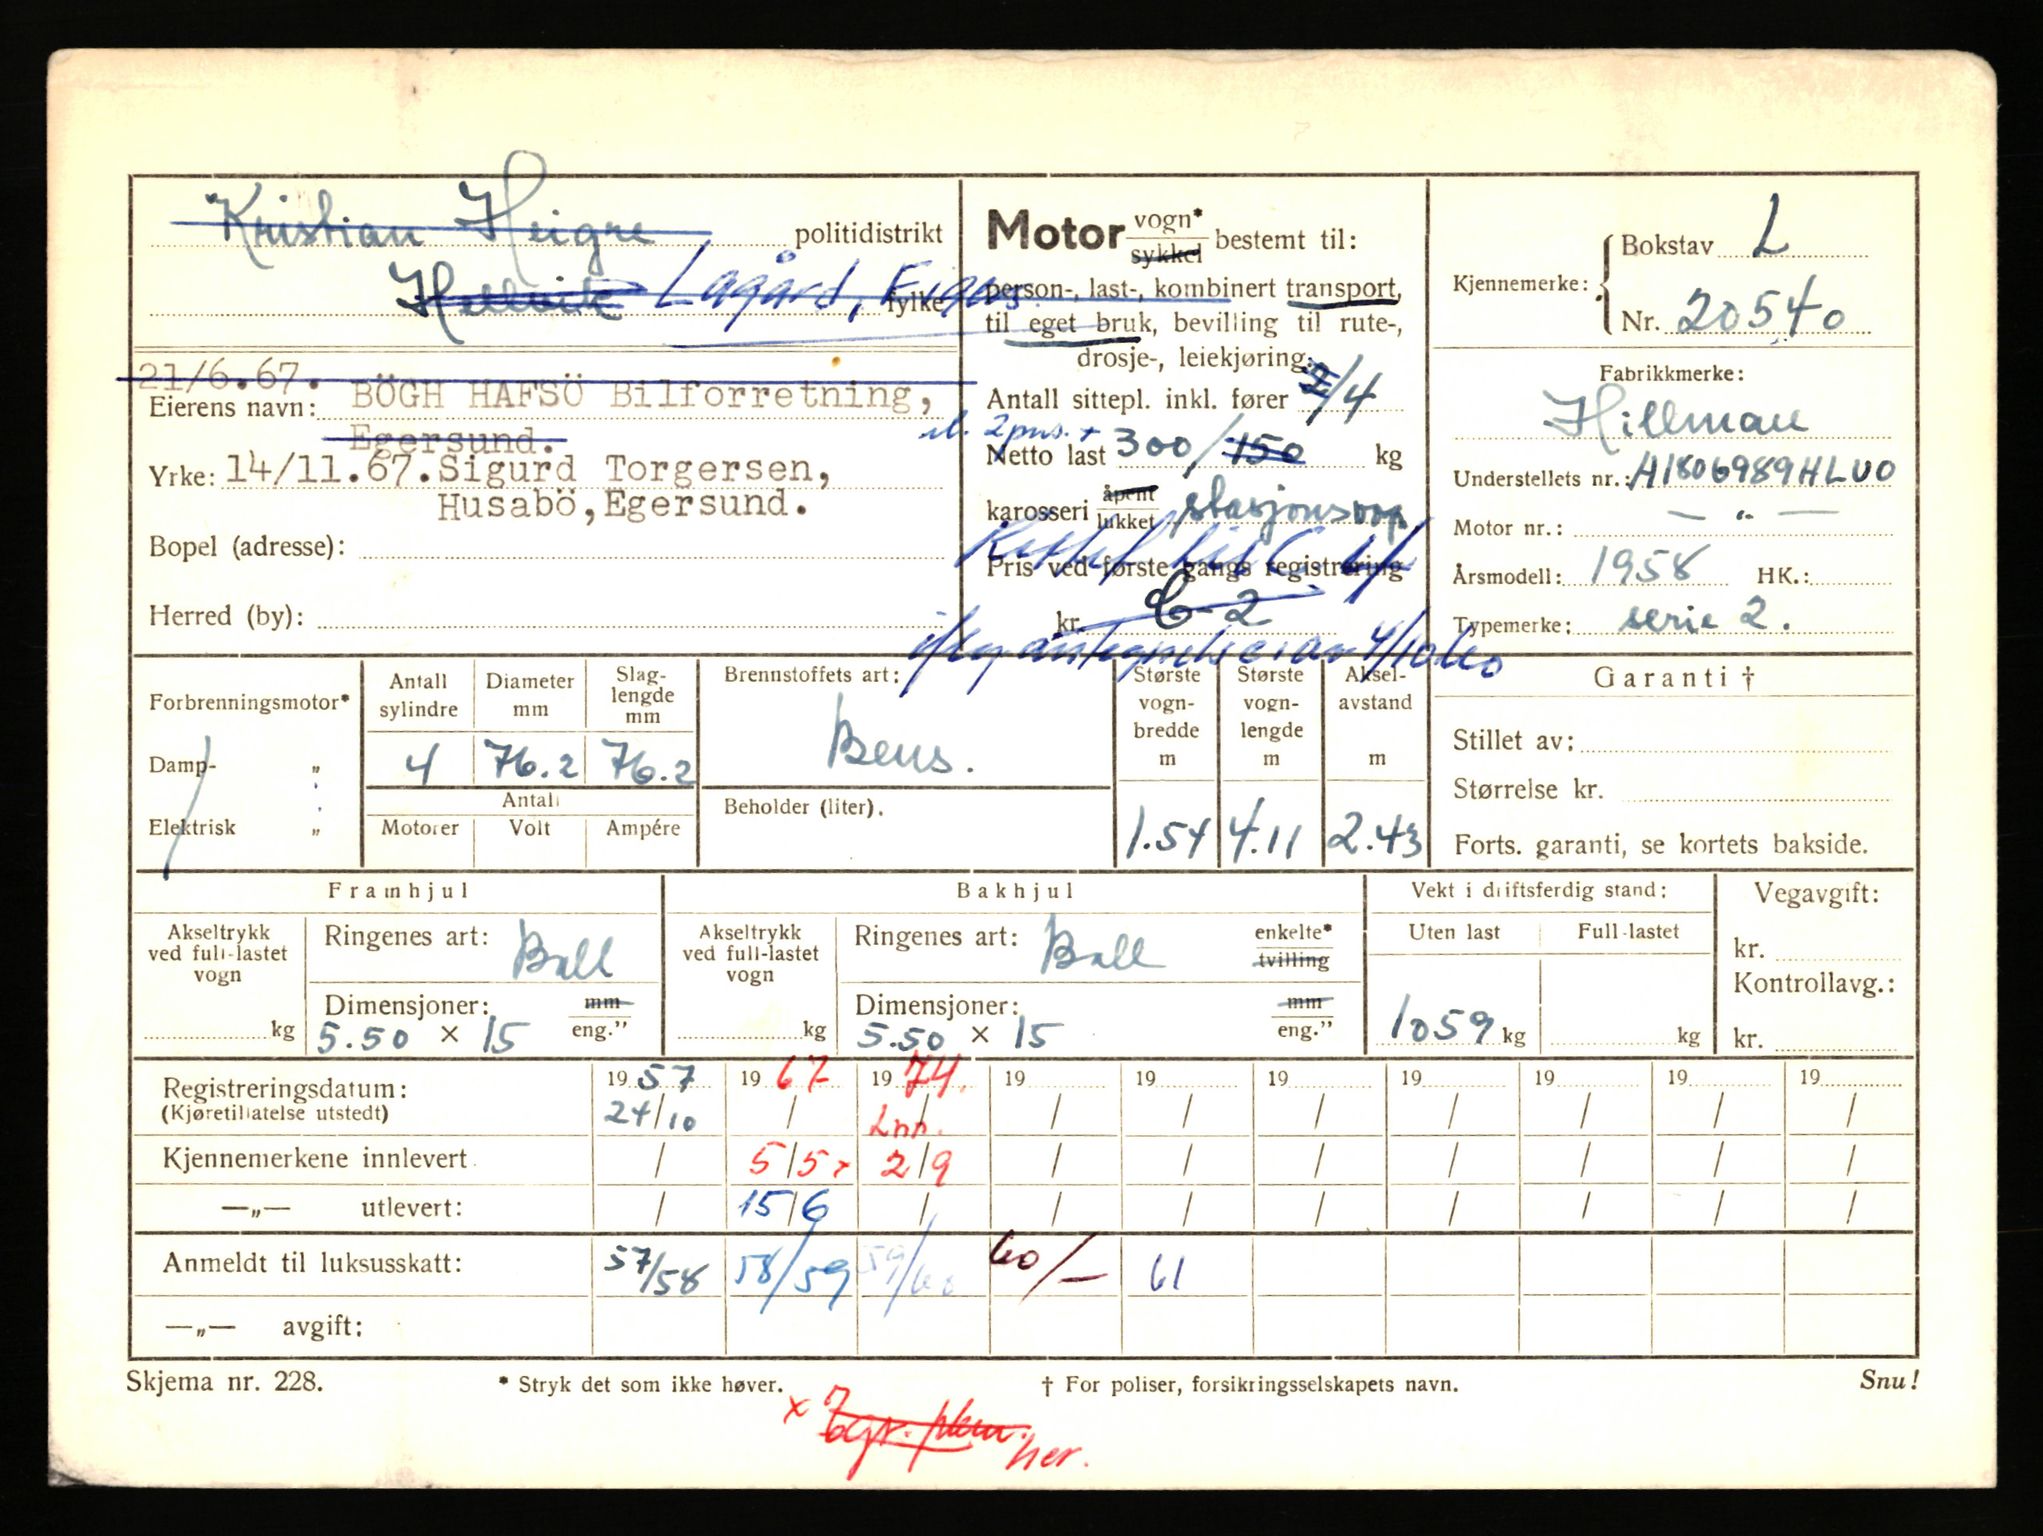 Kristian Heigre politidistrikt
Hellvik Lagård, fylke
21/6.67. BÖGH HAFSÖ Bilforretning,
Eierens navn:
Egersund.
Yrke: 14/11.67.Sigurd Torgersen,
Husabö, Egersund.
Bopel (adresse):
Herred (by):
Motor vogn* sykkel bestemt til:
person-, last-, kombinert transport,
til eget bruk, bevilling til rute-,
drosje-, leiekjøring:
Antall sittepl. inkl. fører 2/4
Netto last 300/150 kg
karosseri åpent lukket stasjonsvogn
Pris ved første gangs registrering
kr. C-2
Kjennemerke: Bokstav L
Nr. 20540
Fabrikkmerke:
Hillman
Understellets nr.: A1806989HLUO
Motor nr.: — „ —
Årsmodell: 1958 HK.:
Typemerke: serie 2.
Forbrenningsmotor*
Damp- „
Elektrisk „
Antall sylindre Diameter mm Slaglengde mm
4 76.2 76.2
Antall
Motorer Volt Ampére
Brennstoffets art:
Bens.
Beholder (liter).
Største vognbredde m Største vognlengde m Akselavstand m
1.54 4.11 2.43
Garanti †
Stillet av:
Størrelse kr.
Forts. garanti, se kortets bakside.
Framhjul
Akseltrykk ved full-lastet vogn
kg
Ringenes art: Ball
Dimensjoner: mm
5.50 × 15 eng."
Bakhjul
Akseltrykk ved full-lastet vogn
kg
Ringenes art: Ball enkelte* tvilling
Dimensjoner: mm
5.50 × 15 eng."
Vekt i driftsferdig stand:
Uten last Full-lastet
1059 kg kg
Vegavgift:
kr.
Kontrollavg.:
kr.
Registreringsdatum: 1957 1967 1974. 19 19 19 19 19 19 19
(Kjøretillatelse utstedt) 24/10 / / Lnn. / / / / / / /
Kjennemerkene innlevert / 5/5 x 2/9 / / / / / / /
—„— utlevert: / 15/6 / / / / / / / /
Anmeldt til luksusskatt: 57/58 58/59 59/60 60/— 61
—„— avgift:
Skjema nr. 228. * Stryk det som ikke høver. † For poliser, forsikringsselskapets navn. Snu!
x her.